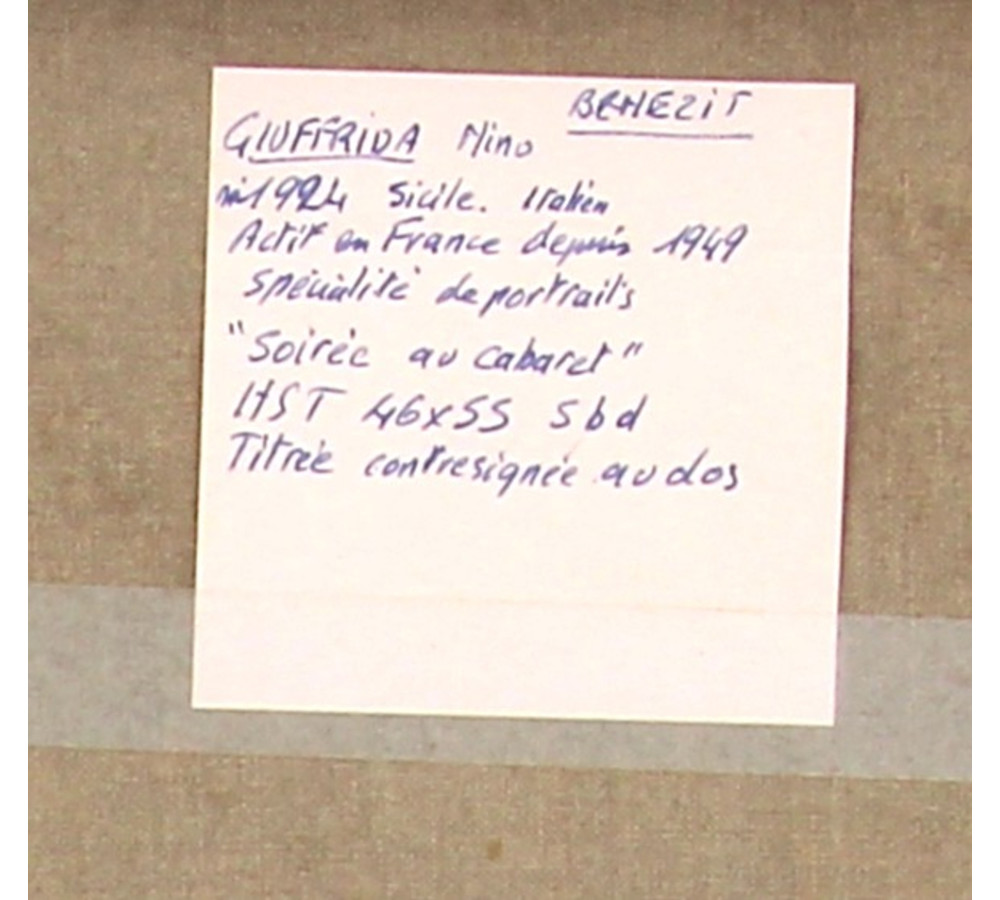 BENEZIT
GIUFFRIDA Nino
né 1924 Sicile. Italien
Actif en France depuis 1949
spécialité de portraits
"Soirée au cabaret"
HST 46x55 Sbd
Titrée contresignée au dos